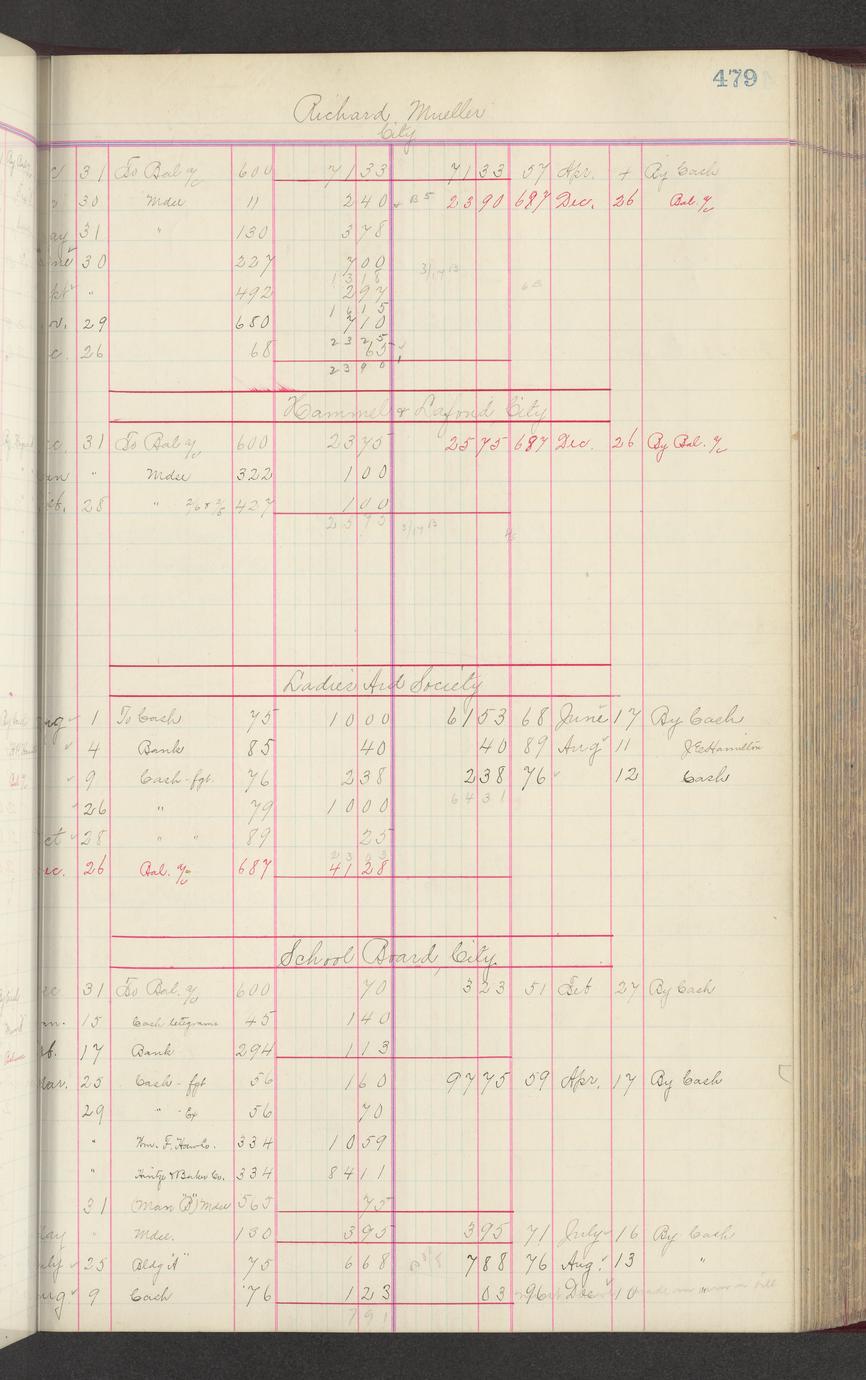 479
Richard Mueller
City
31 To Bal a/c 600 71 33 71 33 57 Apr. 4 By Cash
30 Mdse 11 2 40 23 90 687 Dec. 26 Bal. a/c
31 " 130 3 78
30 227 7 00
13 18
" 492 2 97
16 15
29 680 7 10
23 25
26 68 65
23 90
Hammel & Lafond, City
31 To Bal a/c 600 23 75 25 75 687 Dec. 26 By Bal. a/c
" Mdse 322 1 00
28 " 427 1 00
25 75 3/17 13
Ladies Aid Society
1 To Cash 75 10 00 61 53 68 June 17 By Cash
4 Bank 85 40 40 89 Aug 11 J E Hamilton
9 Cash - fgt. 76 2 38 2 38 76 12 Cash
26 " 79 10 00 64 31
28 " " 89 25
26 Bal. a/c 687 41 28
School Board, City.
31 To Bal. a/c 600 70 3 23 51 Feb 27 By Cash
15 Cash telegrams 45 1 40
17 Bank 294 1 13
25 Cash - fgt 56 1 60 97 75 59 Apr. 17 By Cash
29 " - Ex 56 70
" 334 10 59
" Hintze & Baker Co. 334 84 11
31 (Man "B") Mdse 565 75
" Mdse. 130 3 95 3 95 71 July 16 By Cash
25 Bldg "A" 75 6 68 7 88 76 Aug. 13 "
9 Cash 76 1 23 03 96 Dec 10 "
7 91